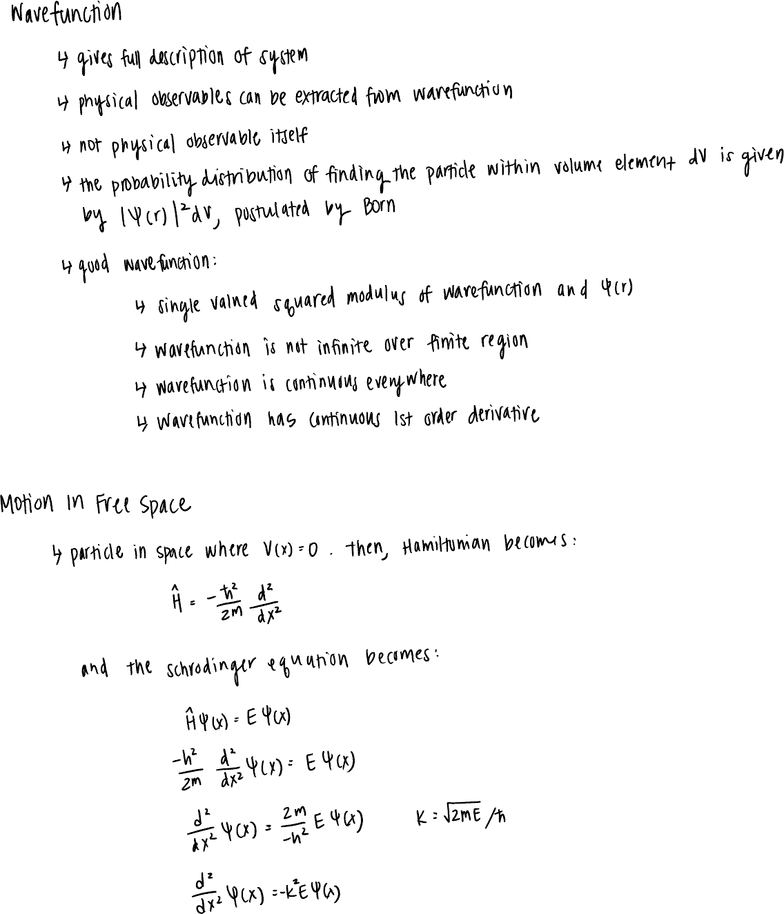 Wavefunction
↳ gives full description of system
↳ physical observables can be extracted from wavefunction
↳ not physical observable itself
↳ the probability distribution of finding the particle within volume element dV is given
by |Ψ(r)|²dV, postulated by Born
↳ good wavefunction:
↳ single valued squared modulus of wavefunction and Ψ(r)
↳ wavefunction is not infinite over finite region
↳ wavefunction is continuous everywhere
↳ wavefunction has continuous 1st order derivative
Motion in Free Space
↳ particle in space where V(x)=0. then, Hamiltonian becomes:
Ĥ = -ħ²/2m d²/dx²
and the schrodinger equation becomes:
ĤΨ(x) = EΨ(x)
-ħ²/2m d²/dx² Ψ(x) = EΨ(x)
d²/dx² Ψ(x) = 2m/-ħ² EΨ(x) K = √2mE/ħ
d²/dx² Ψ(x) = -k²EΨ(x)